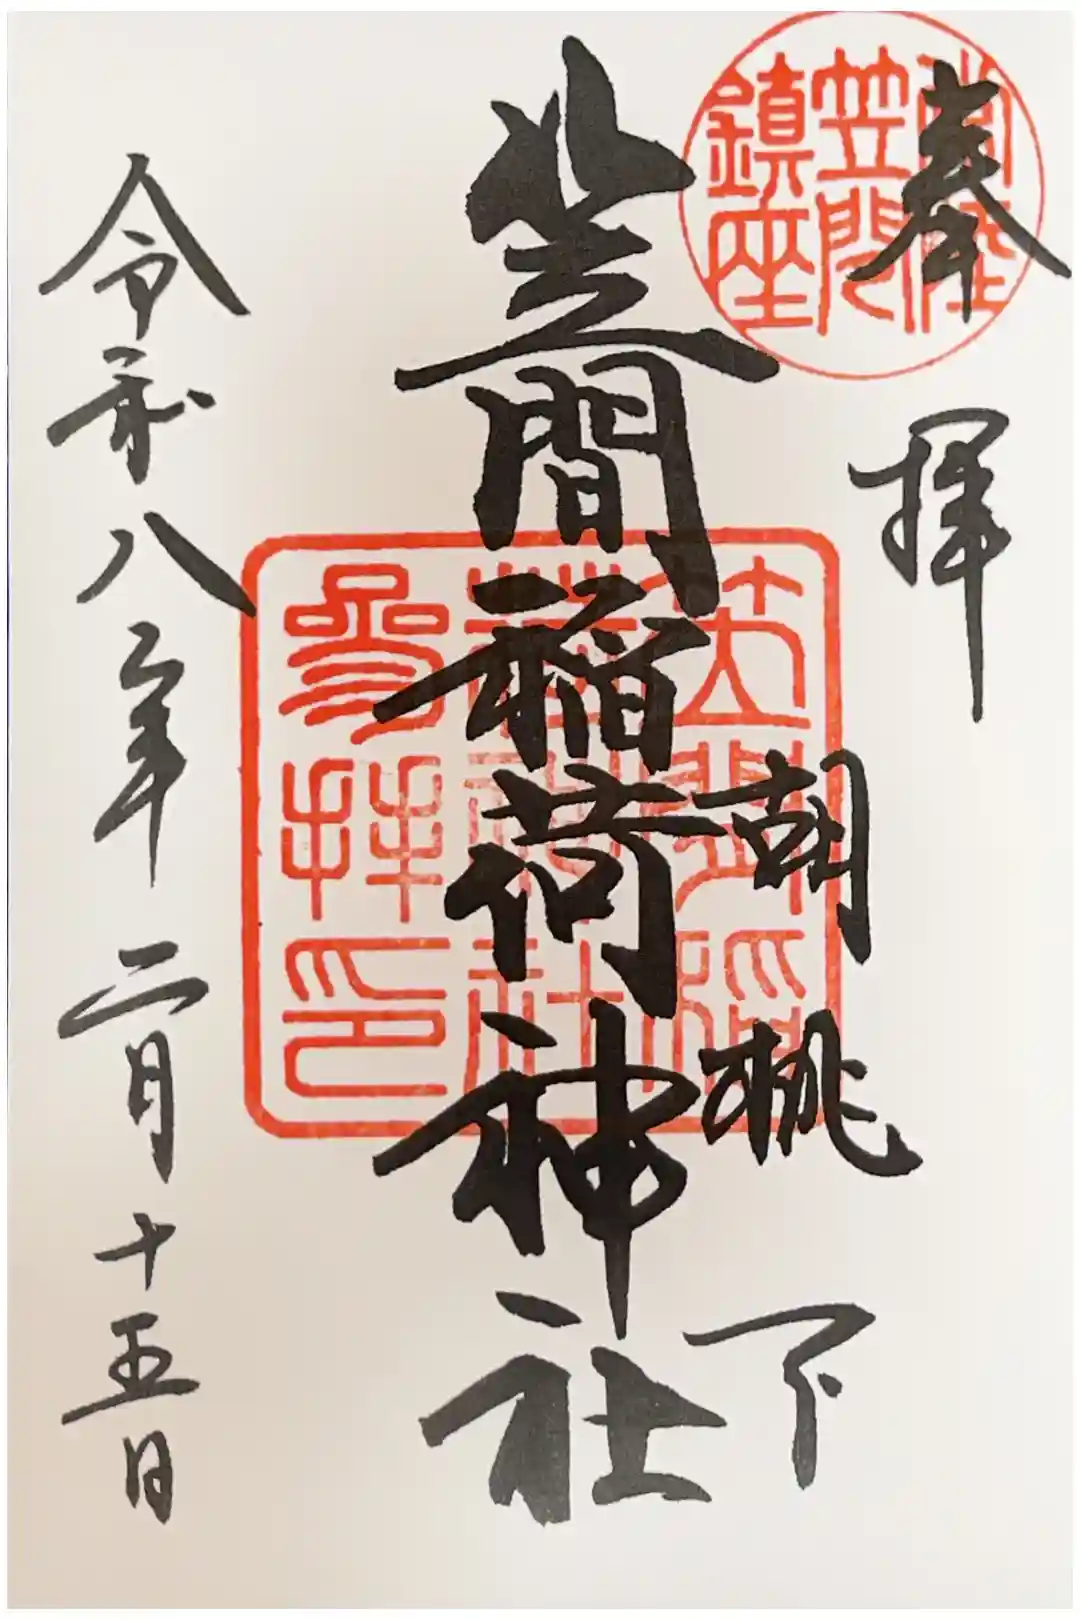 奉拝
常陸
笠間
鎮座
胡桃下
笠間稲荷神社
笠間稲
荷神社
参拝印
令和八年二月十五日